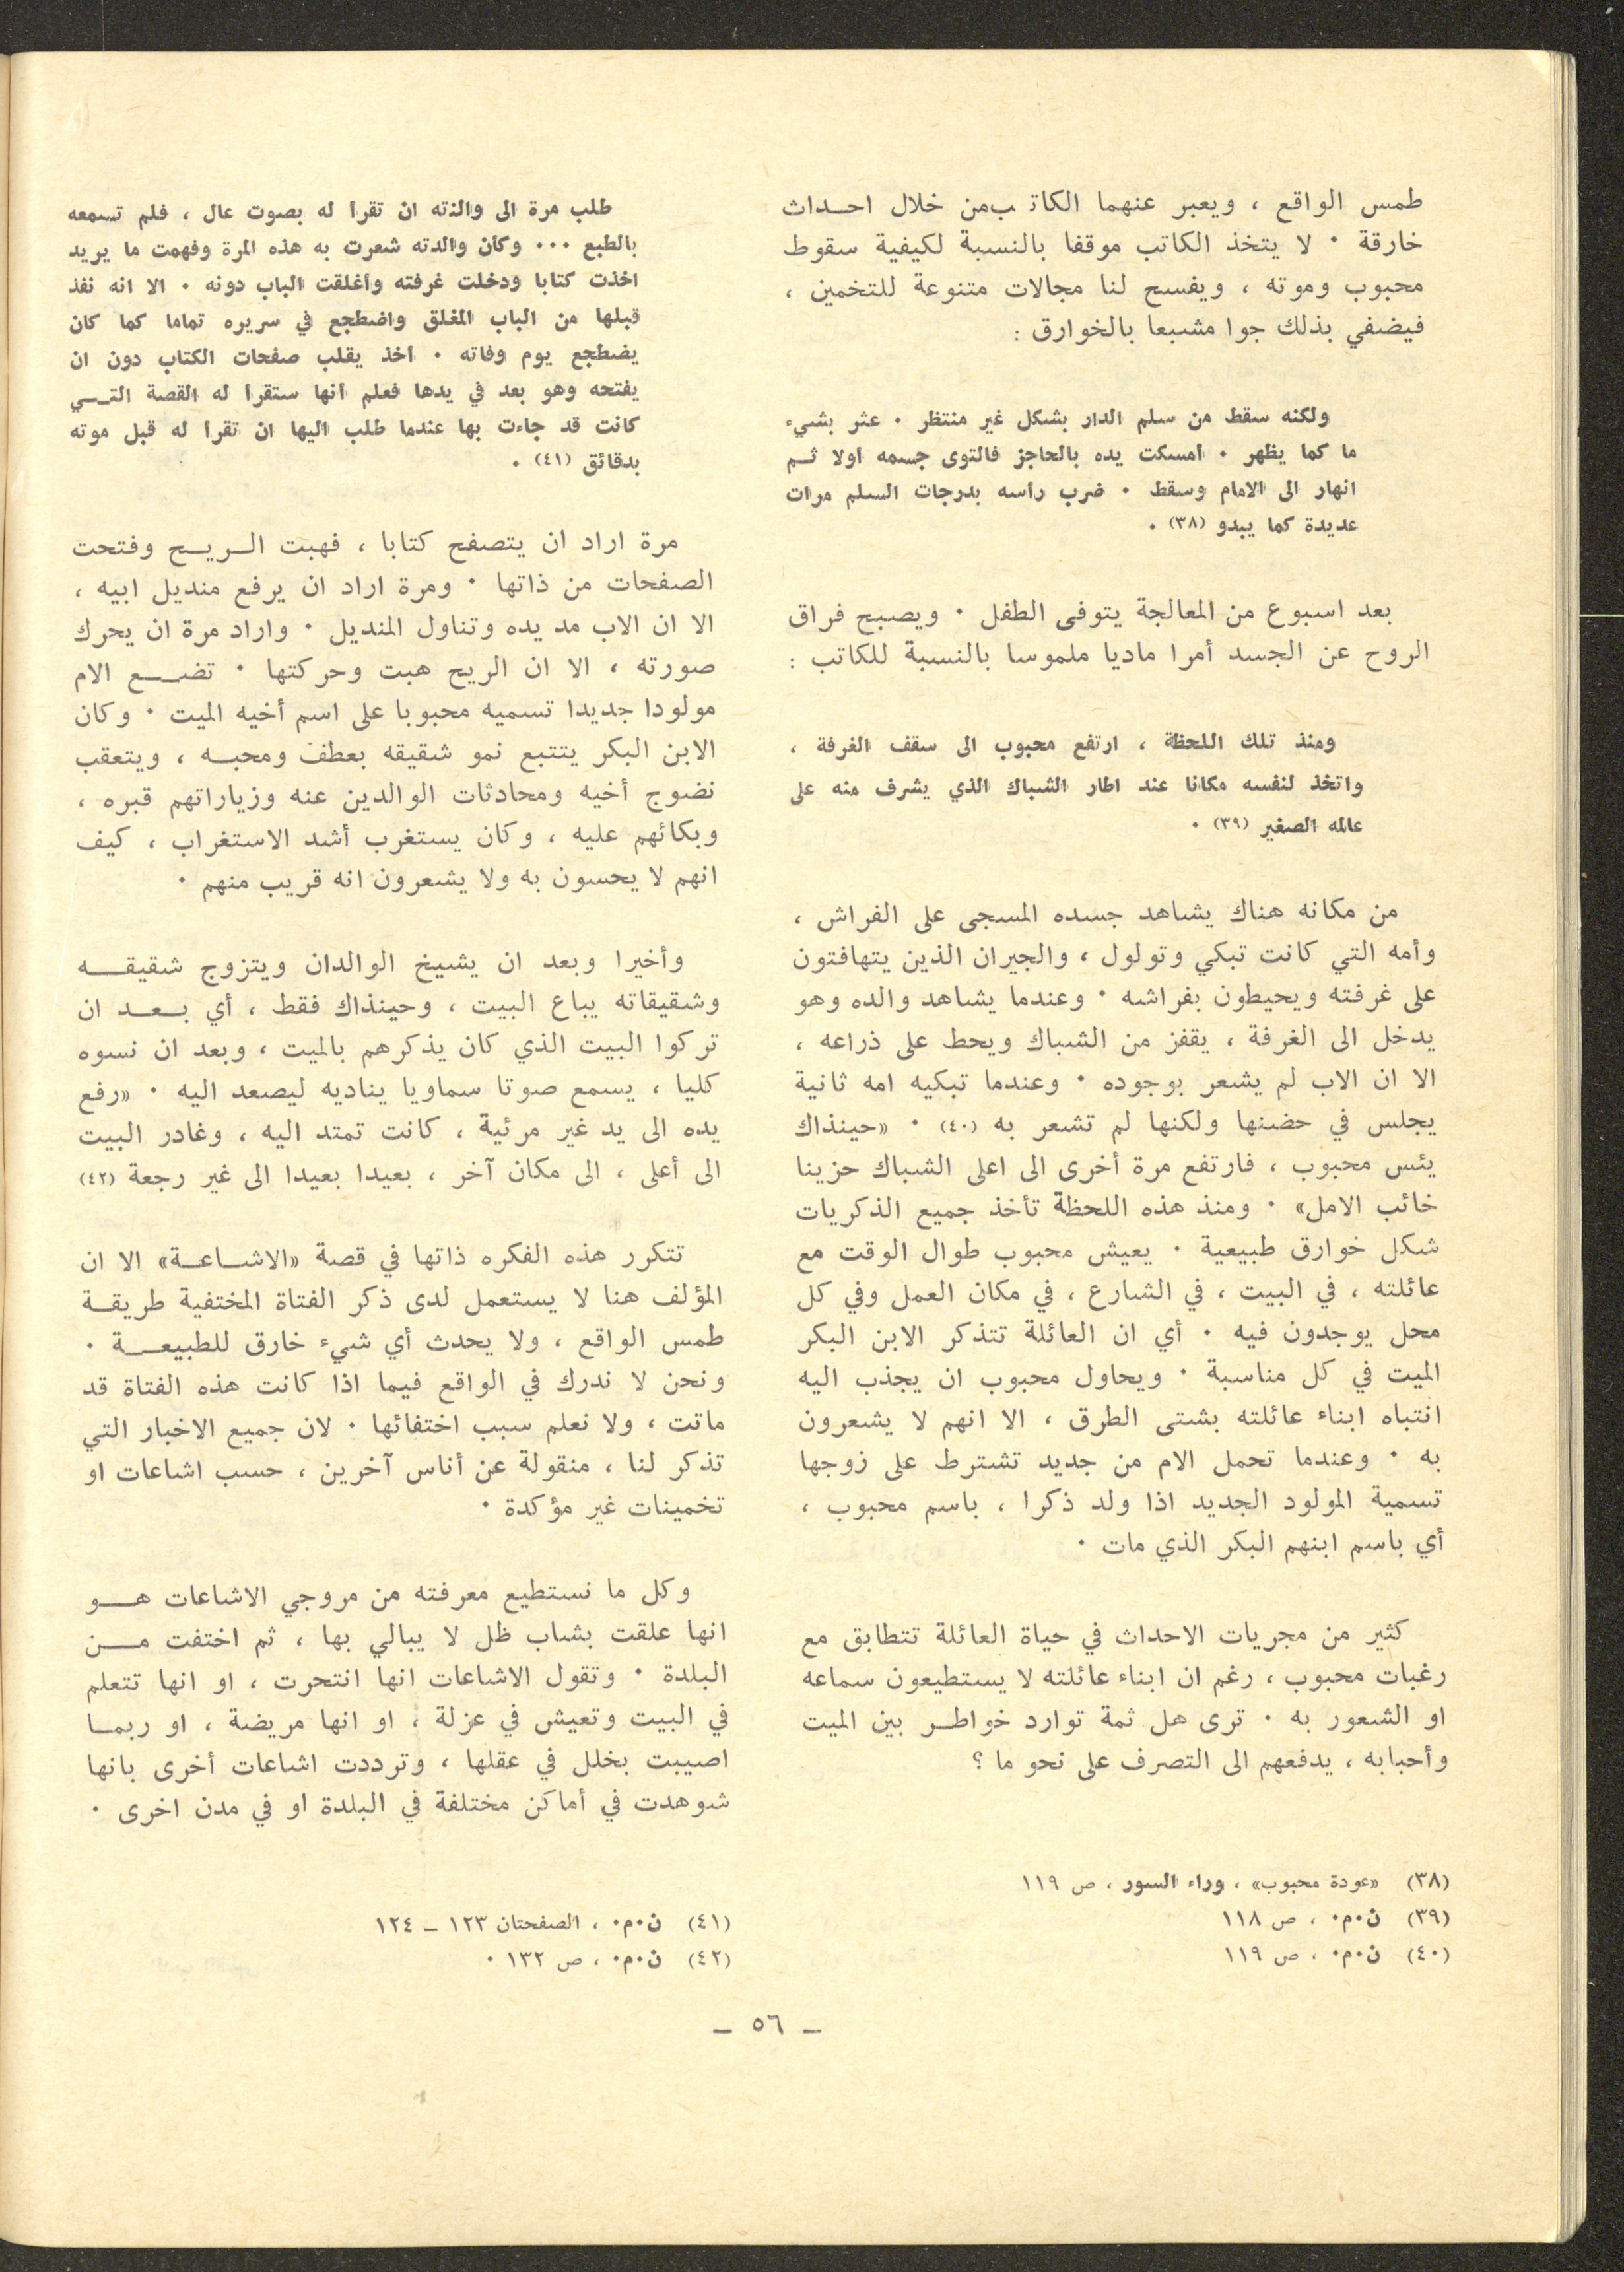 طمس الواقع ، ويعبر عنهما الكاتب من خلال احداث
خارقة ٠ لا يتخذ الكاتب موقفا بالنسبة لكيفية سقوط
محبوب وموته ، ويفسح لنا مجالات متنوعة للتخمين ،
فيضفي بذلك جوا مشبعا بالخوارق :
ولكنه سقط من سلم الدار بشكل غير منتظر ٠ عثر بشيء
ما كما يظهر ٠ امسكت يده بالحاجز فالتوى جسمه اولا ثم
انهار الى الامام وسقط ٠ ضرب رأسه بدرجات السلم مرات
عديدة كما يبدو (٣٨) ٠
بعد اسبوع من المعالجة يتوفى الطفل ٠ ويصبح فراق
الروح عن الجسد أمرا ماديا ملموسا بالنسبة للكاتب :
ومنذ تلك اللحظة ، ارتفع محبوب الى سقف الغرفة ،
واتخذ لنفسه مكانا عند اطار الشباك الذي يشرف منه على
عالمه الصغير (٣٩) ٠
من مكانه هناك يشاهد جسده المسجى على الفراش ،
وأمه التي كانت تبكي وتولول ، والجيران الذين يتهافتون
على غرفته ويحيطون بفراشه ٠ وعندما يشاهد والده وهو
يدخل الى الغرفة ، يقفز من الشباك ويحط على ذراعه ،
الا ان الاب لم يشعر بوجوده ٠ وعندما تبكيه امه ثانية
يجلس في حضنها ولكنها لم تشعر به (٤٠) ٠ «حينذاك
يئس محبوب ، فارتفع مرة أخرى الى اعلى الشباك حزينا
خائب الامل» ٠ ومنذ هذه اللحظة تأخذ جميع الذكريات
شكل خوارق طبيعية ٠ يعيش محبوب طوال الوقت مع
عائلته ، في البيت ، في الشارع ، في مكان العمل وفي كل
محل يوجدون فيه ٠ أي ان العائلة تتذكر الابن البكر
الميت في كل مناسبة ٠ ويحاول محبوب ان يجذب اليه
انتباه ابناء عائلته بشتى الطرق ، الا انهم لا يشعرون
به ٠ وعندما تحمل الام من جديد تشترط على زوجها
تسمية المولود الجديد اذا ولد ذكرا ، باسم محبوب ،
أي باسم ابنهم البكر الذي مات ٠
كثير من مجريات الاحداث في حياة العائلة تتطابق مع
رغبات محبوب ، رغم ان ابناء عائلته لا يستطيعون سماعه
او الشعور به ٠ ترى هل ثمة توارد خواطر بين الميت
وأحبابه ، يدفعهم الى التصرف على نحو ما ؟
(٣٨) «عودة محبوب» ، وراء السور ، ص ١١٩
(٣٩) ن٠م٠ ، ص ١١٨
(٤٠) ن٠م٠ ، ص ١١٩
طلب مرة الى والدته ان تقرأ له بصوت عال ، فلم تسمعه
بالطبع ٠٠٠ وكأن والدته شعرت به هذه المرة وفهمت ما يريد
اخذت كتابا ودخلت غرفته وأغلقت الباب دونه ٠ الا انه نفذ
قبلها من الباب المغلق واضطجع في سريره تماما كما كان
يضطجع يوم وفاته ٠ أخذ يقلب صفحات الكتاب دون ان
يفتحه وهو بعد في يدها فعلم أنها ستقرأ له القصة التي
كانت قد جاءت بها عندما طلب اليها ان تقرأ له قبل موته
بدقائق (٤١) ٠
مرة اراد ان يتصفح كتابا ، فهبت الريح وفتحت
الصفحات من ذاتها ٠ ومرة اراد ان يرفع منديل ابيه ،
الا ان الاب مد يده وتناول المنديل ٠ واراد مرة ان يحرك
صورته ، الا ان الريح هبت وحركتها ٠ تضع الام
مولودا جديدا تسميه محبوبا على اسم أخيه الميت ٠ وكان
الابن البكر يتتبع نمو شقيقه بعطف ومحبه ، ويتعقب
نضوج أخيه ومحادثات الوالدين عنه وزياراتهم قبره ،
وبكائهم عليه ، وكان يستغرب أشد الاستغراب ، كيف
انهم لا يحسون به ولا يشعرون انه قريب منهم ٠
وأخيرا وبعد ان يشيخ الوالدان ويتزوج شقيقه
وشقيقاته يباع البيت ، وحينذاك فقط ، أي بعد ان
تركوا البيت الذي كان يذكرهم بالميت ، وبعد ان نسوه
كليا ، يسمع صوتا سماويا يناديه ليصعد اليه ٠ «رفع
يده الى يد غير مرئية ، كانت تمتد اليه ، وغادر البيت
الى أعلى ، الى مكان آخر ، بعيدا بعيدا الى غير رجعة (٤٢)
تتكرر هذه الفكره ذاتها في قصة «الاشاعة» الا ان
المؤلف هنا لا يستعمل لدى ذكر الفتاة المختفية طريقة
طمس الواقع ، ولا يحدث أي شيء خارق للطبيعة ٠
ونحن لا ندرك في الواقع فيما اذا كانت هذه الفتاة قد
ماتت ، ولا نعلم سبب اختفائها ٠ لان جميع الاخبار التي
تذكر لنا ، منقولة عن أناس آخرين ، حسب اشاعات او
تخمينات غير مؤكدة ٠
وكل ما نستطيع معرفته من مروجي الاشاعات هو
انها علقت بشاب ظل لا يبالي بها ، ثم اختفت من
البلدة ٠ وتقول الاشاعات انها انتحرت ، او انها تتعلم
في البيت وتعيش في عزلة ، او انها مريضة ، او ربما
اصيبت بخلل في عقلها ، وترددت اشاعات أخرى بانها
شوهدت في أماكن مختلفة في البلدة او في مدن اخرى ٠
(٤١) ن٠م٠ ، الصفحتان ١٢٣ – ١٢٤
(٤٢) ن٠م٠ ، ص ١٣٢ ٠
– ٥٦ –